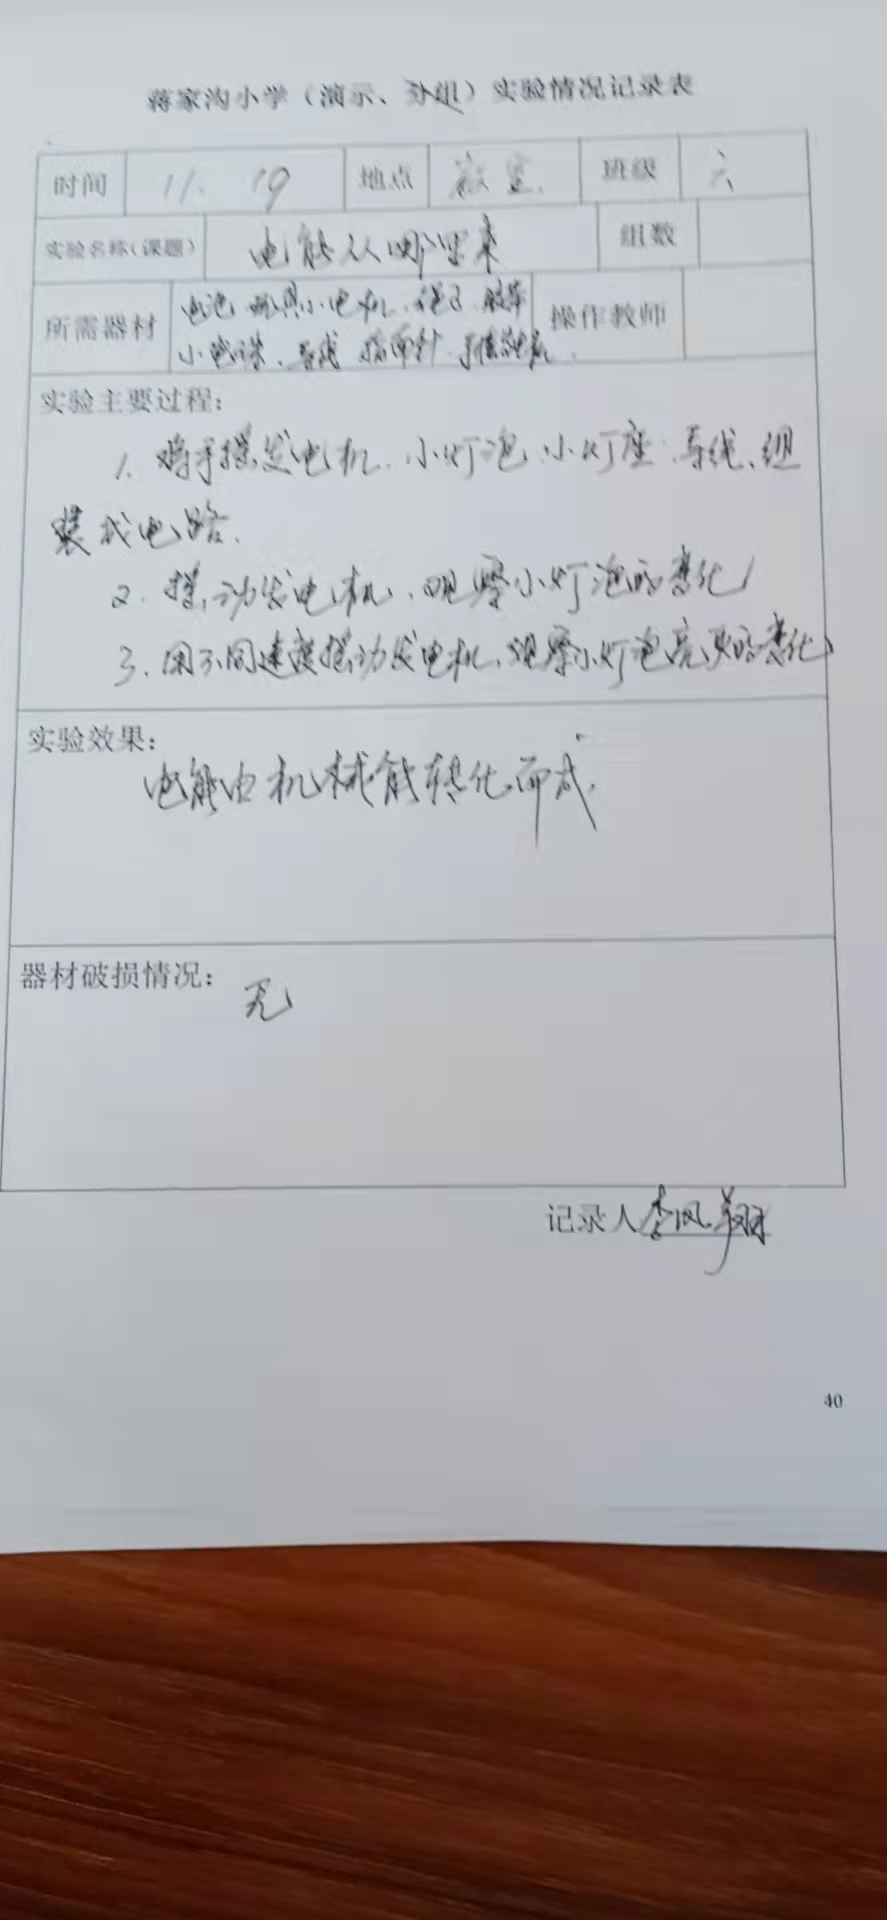 蒋家沟小学（演示、分组）实验情况记录表
时间 11. 19 地点 教室. 班级 六
实验名称(课题) 电能从哪里来 组数
所需器材 电池 玩具小电机、 操作教师
小电珠、导线 指南针 手摇发电机.
实验主要过程:
1. 将手摇发电机、小灯泡、小灯座、导线、组
装成电路.
2. 摇动发电机、观察小灯泡的变化
3. 用不同速度摇动发电机、观察小灯泡亮灭的变化
实验效果:
电能由机械能转化而成.
器材破损情况: 无
记录人 李凤翔
40